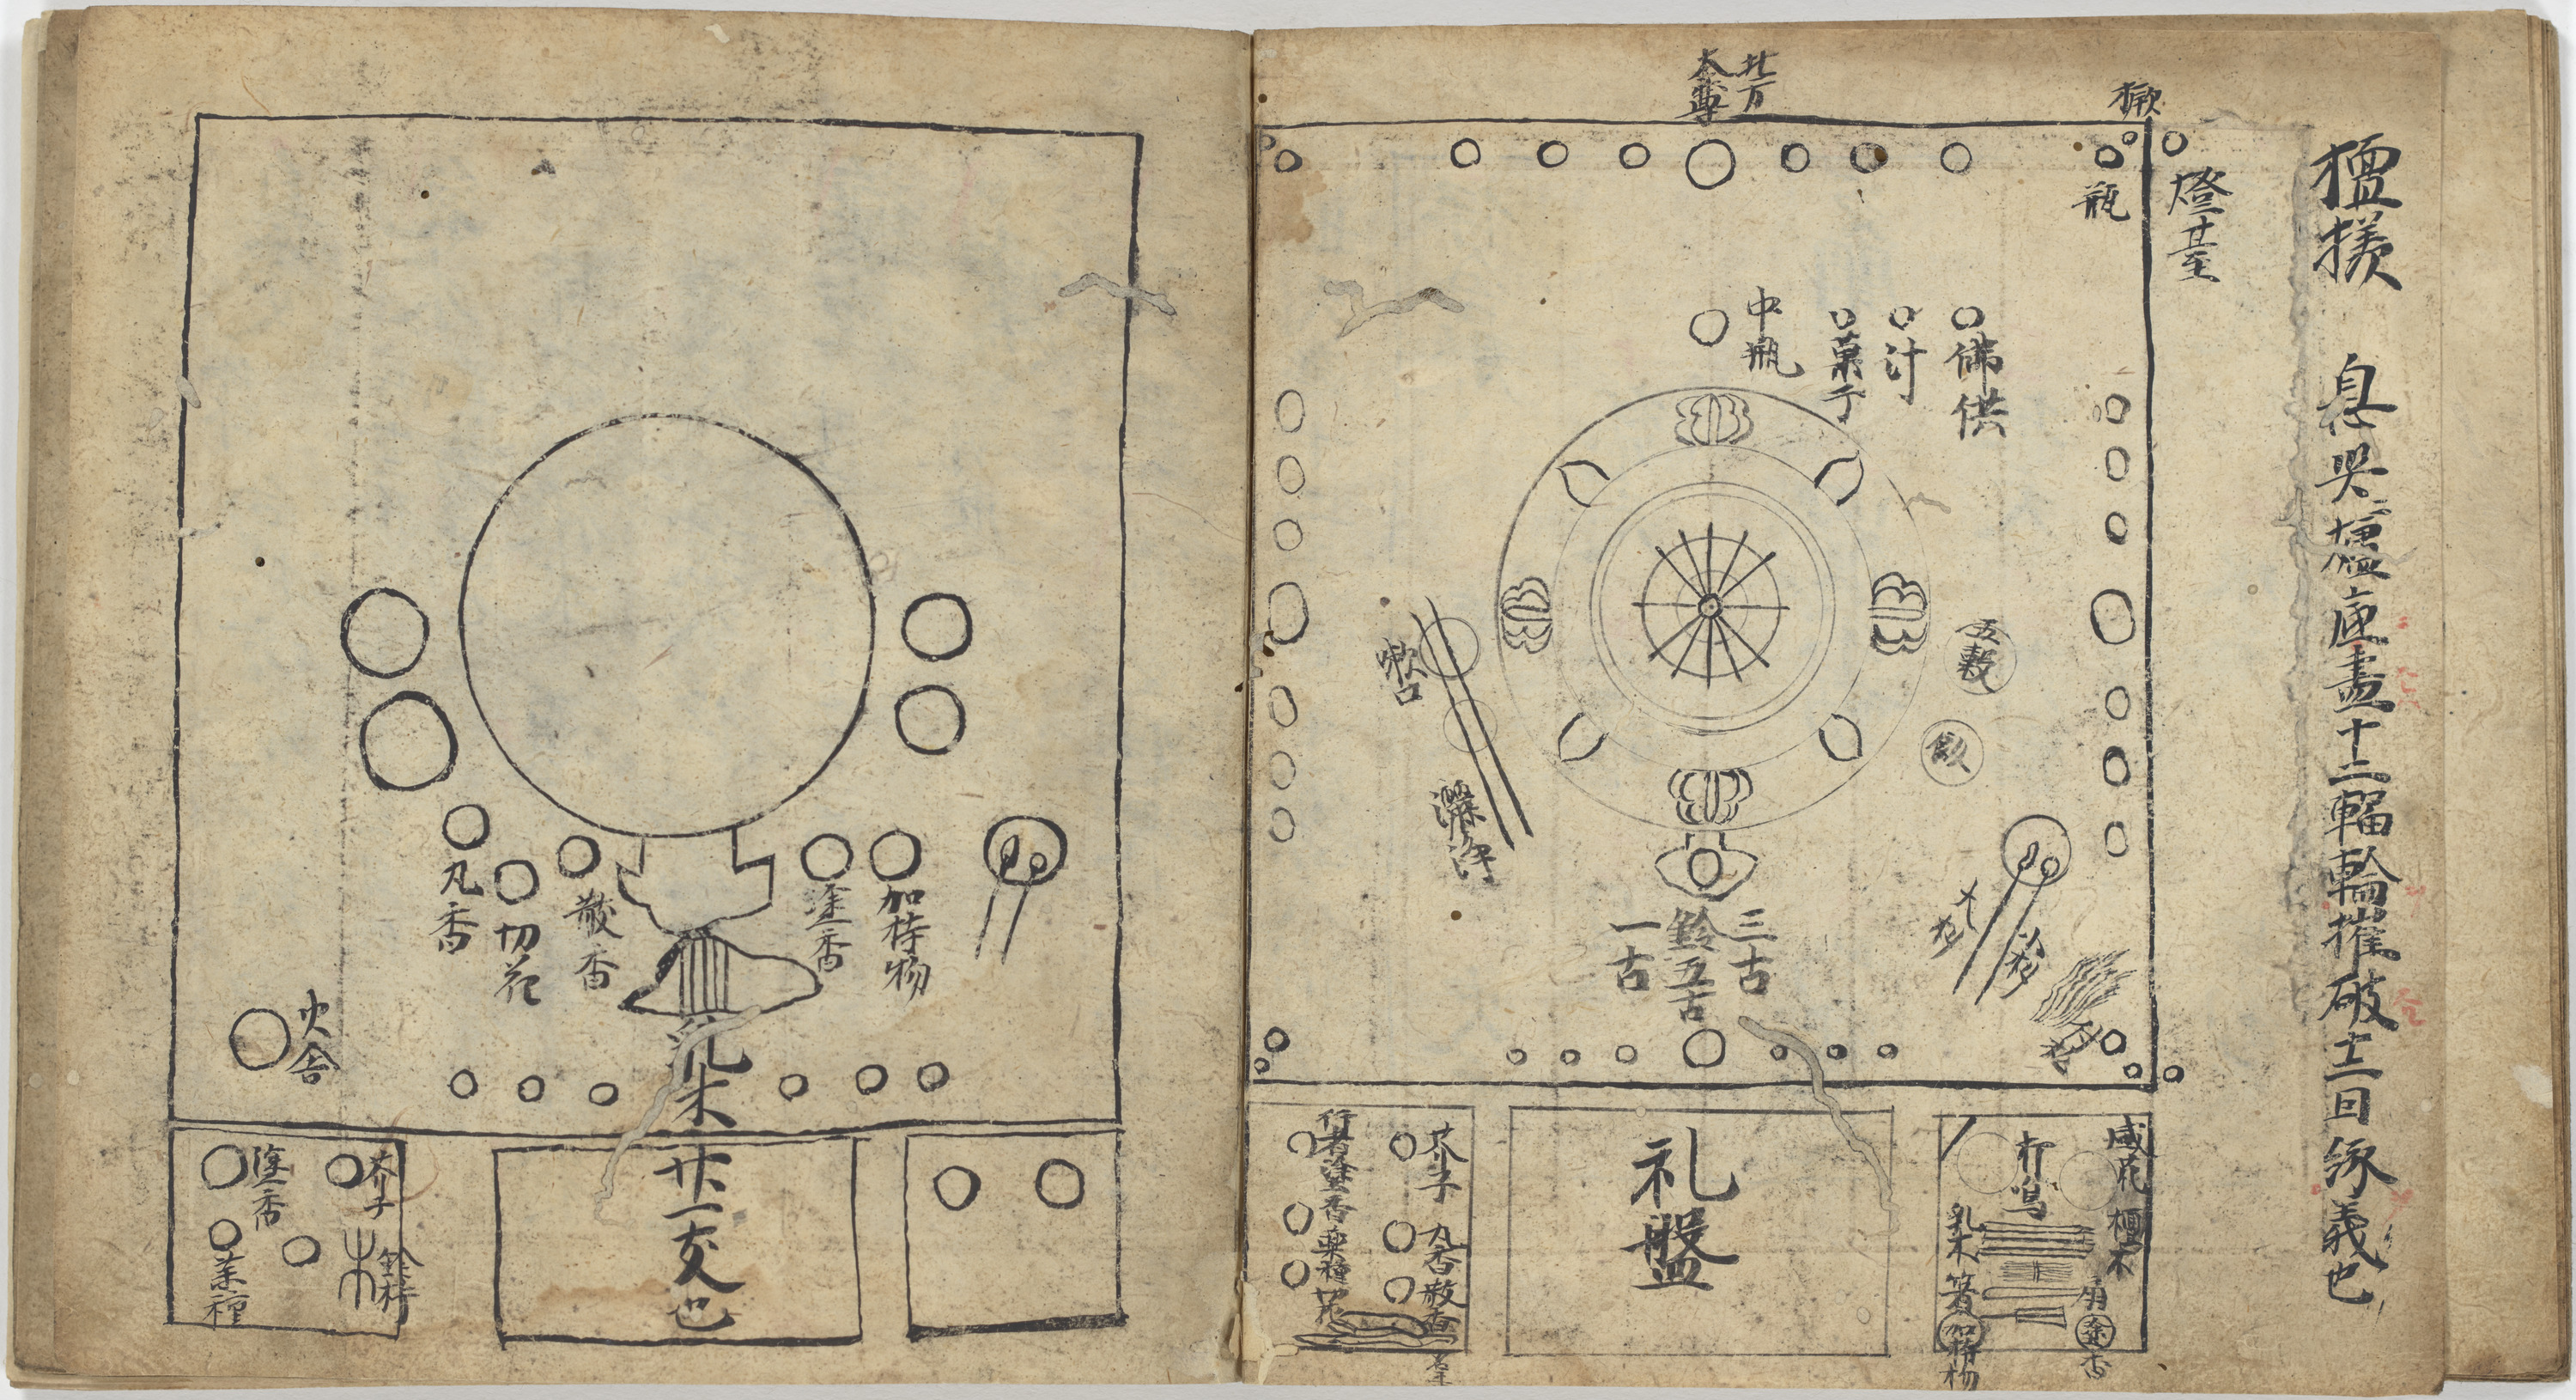 壇様 息災壇底畫十二輻輪摧破十二因縁義也
橛
燈臺
瓶
北方
大壇
佛供
汁
菓子
中瓶
五穀
飯
嗽口
灑浄
三古
鈴五古
一古
礼盤
房花 檀木
打鳴
扇
塗香
乳木 箸 加持物
芥子 丸香 散香
行者塗香 薬種
加持物
塗香
散香
切花
丸香
火舎
沈木
廿一支也
芥子
塗香
鈴杵
薬種